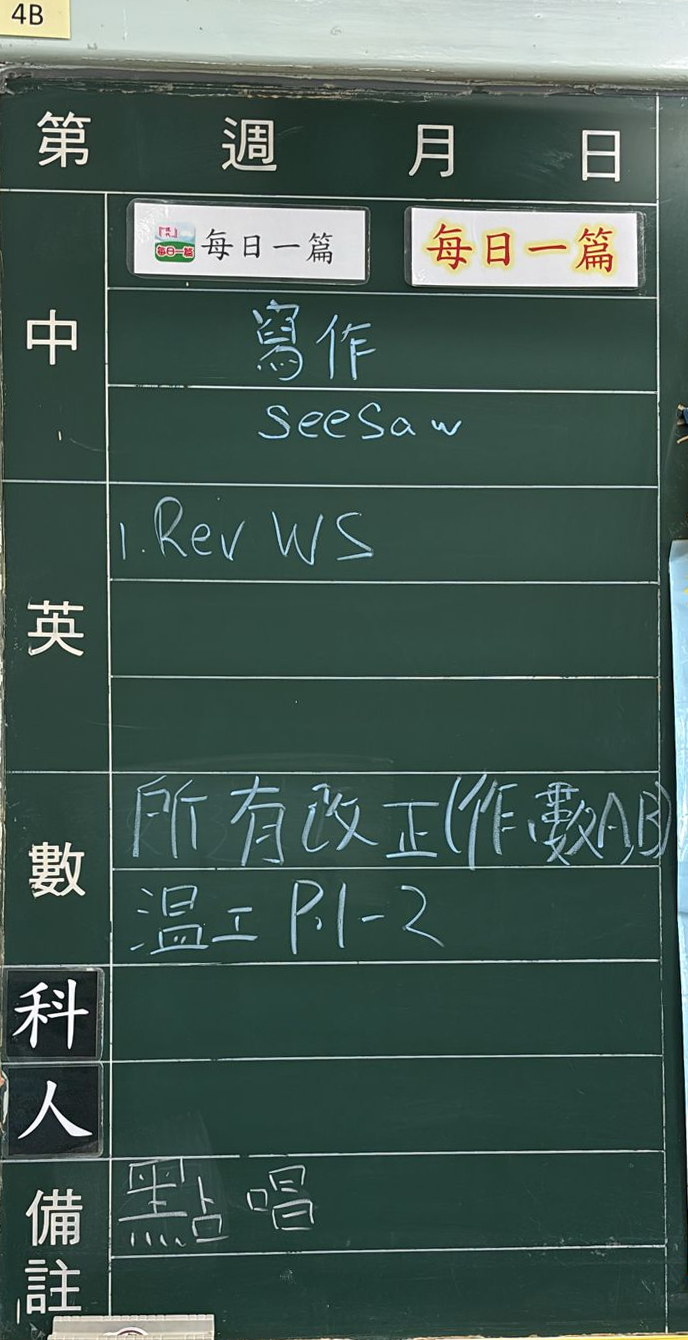 4B
第 週 月 日
中
每日一篇 每日一篇
寫作
seesaw
英
1. Rev WS
數
所有改正(作,數A,B)
溫工 P.1-2
科
人
備註
點唱